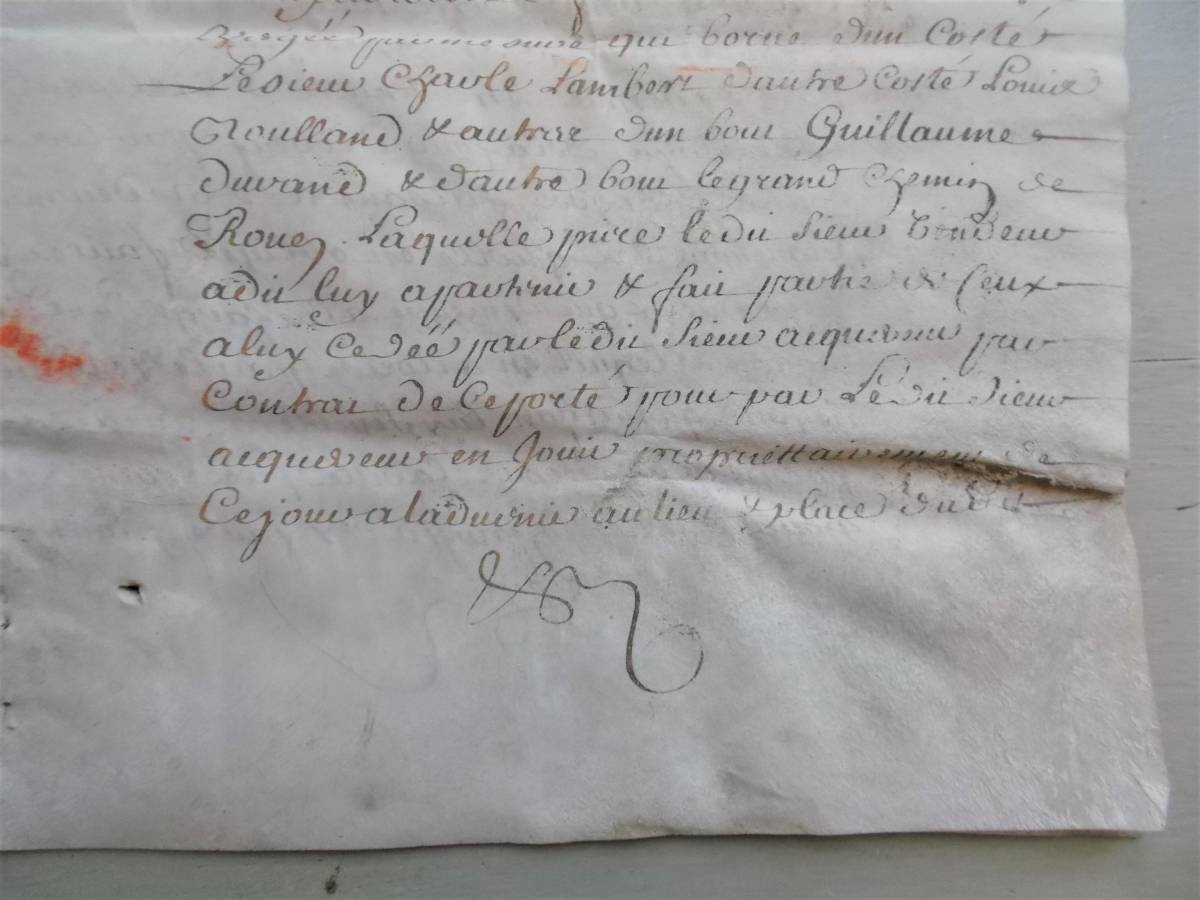 vergée par mesure qui borne d'un Costé
Lesieur Charle Lambert dautre Costé Louis
Roulland & autres dun bout Guillaume
Durand & dautre bout legrand Chemin de
Rouen. Laquelle piece ledit sieur vendeur
adit luy apartenir & fait partie de Ceux
aluy Cedéé parledit sieur acquereur par
Contrat de Ceporté pour par Ledit sieur
acquereur en Jouir propriettairement de
Cejour aladvenir aulieu & place dudt